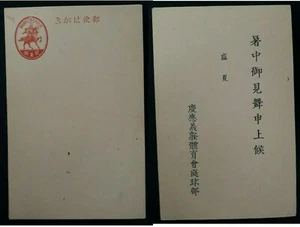 郵便はがき
暑中御見舞申上候
盛夏
慶應義塾體育會庭球部